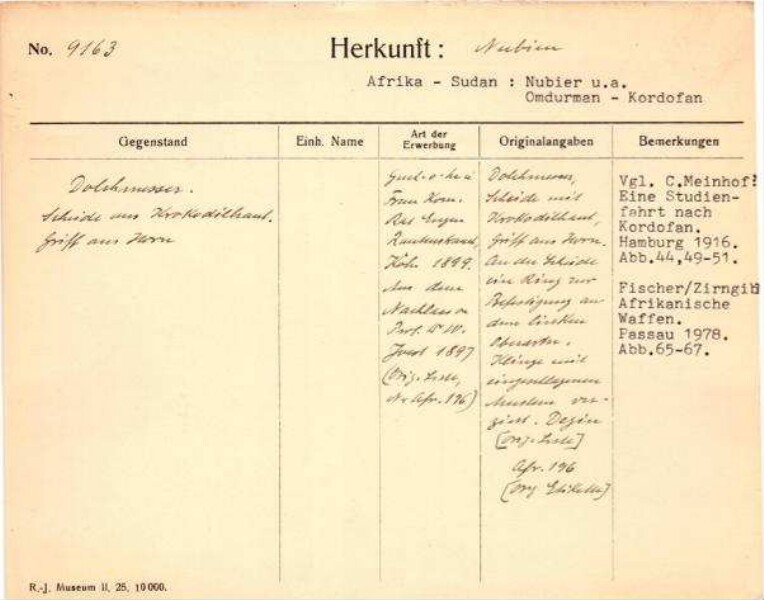 No. 9163
Herkunft: Nubien
Afrika - Sudan : Nubier u.a.
Omdurman - Kordofan
Gegenstand
Einh. Name
Art der
Erwerbung
Originalangaben
Bemerkungen
Dolchmesser.
Scheide aus Krokodilhaut.
Griff aus Horn
Frau Kom.
Rat Eugen
Rautenstrauch,
Köln 1899.
Aus dem
Nachlass v
Prof. Dr W.
Joest 1897
(Orig. Liste,
Nr Afr. 196)
Dolchmesser,
Scheide mit
Krokodilhaut,
Griff aus Horn.
An der Scheide
ein Ring zur
Befestigung an
dem linken
Oberarm.
Klinge mit
eingeschlagenen
Mustern ver-
ziert.
[Orig. Liste]
Afr. 196
[Orig. Etikette]
Vgl. C.Meinhof:
Eine Studien-
fahrt nach
Kordofan.
Hamburg 1916.
Abb.44,49-51.
Fischer/Zirngibl
Afrikanische
Waffen.
Passau 1978.
Abb.65-67.
R.-J. Museum II, 25, 10 000.